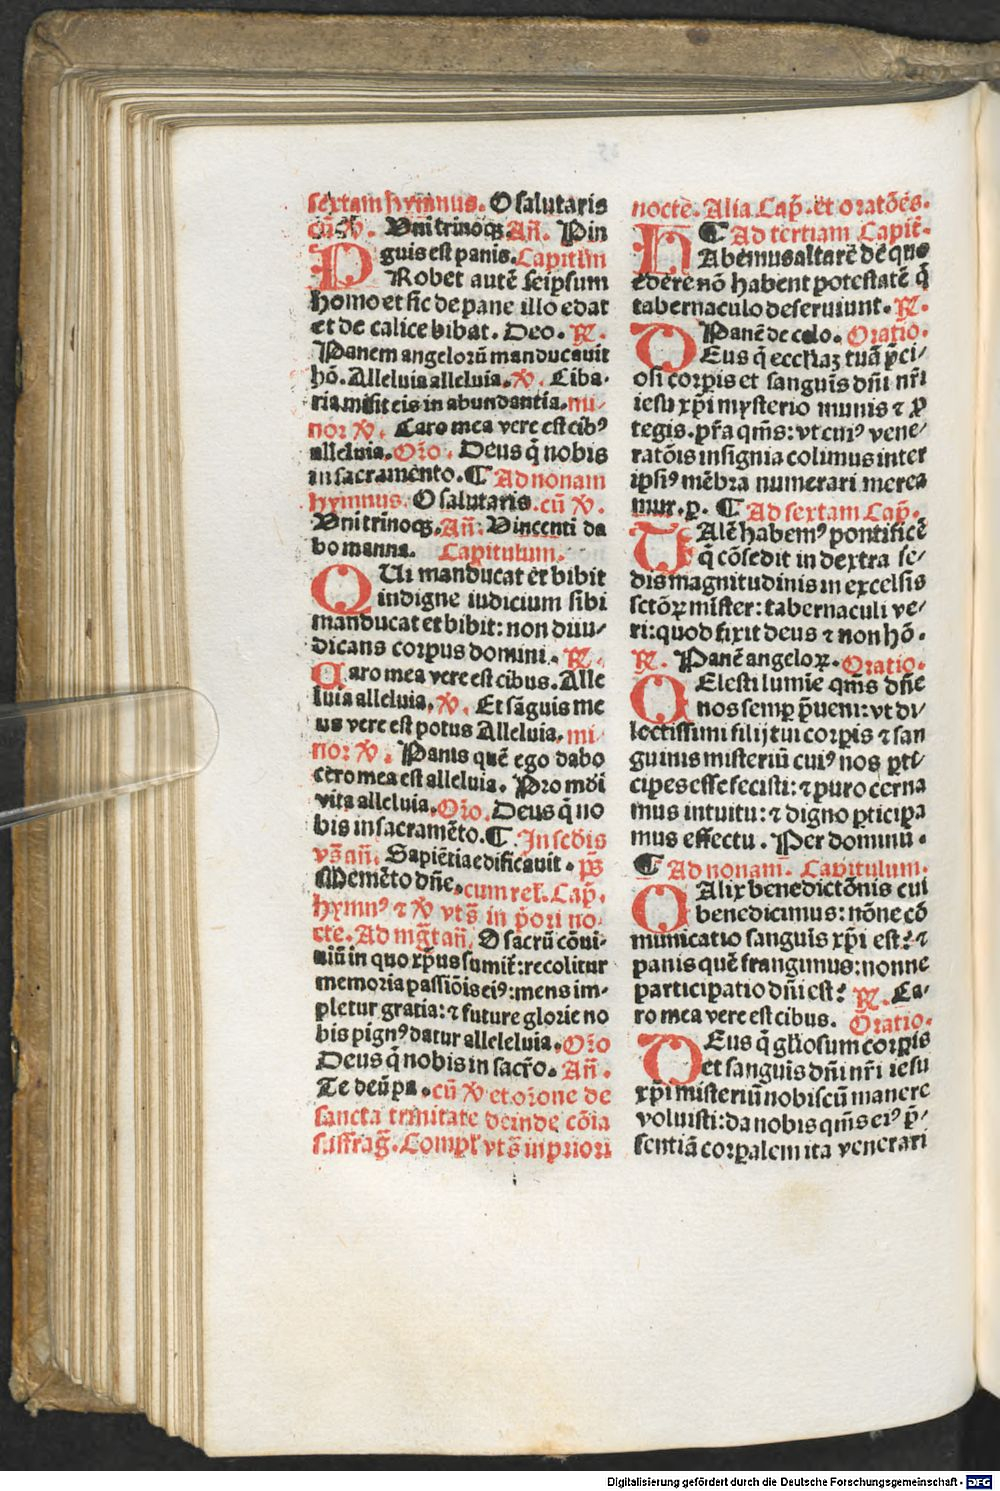 sextam hymnus. O salutaris
cū ℣. Vni trinoqꝫ. Añ. Pin
guis est panis. Capitlm
PRobet autē seipsum
homo et sic de pane illo edat
et de calice bibat. Deo. ℟.
Panem angeloꝝ manducauit
hō. Alleluia alleluia. ℣. Ciba-
ria misit eis in abundantia. mi/
nor ℣. Caro mea vere est cibꝰ
alleluia. Oro. Deus q̄ nobis
in sacramento. ¶ Ad nonam
hymnus. O salutaris. cū ℣.
Vni trinoqꝫ. Añ. Vincenti da
bo manna. Capitulum.
QUi manducat et bibit
indigne iudicium sibi
manducat et bibit: non diiu/
dicans corpus domini. ℟.
Caro mea vere est cibus. Alle
luia alleluia. ℣. Et sāguis me
us vere est potus Alleluia. mi
nor ℣. Panis quē ego dabo
caro mea est alleluia. Pro mūdi
vita alleluia. Oro. Deus q̄ no
bis in sacramēto. ¶ In scdis
vs̄ añ. Sapiētia edificauit. ps̄
Memēto dn̄e. cum rel. Cap̄.
hymnꝰ ⁊ ℣ vts̄ in p̄ori no-
cte. Ad mgt̄ añ. O sacrū cōui-
uiū in quo xp̄us sumit̄: recolitur
memoria passiōis eiꝰ: mens im-
pletur gratia: ⁊ future glorie no
bis pignꝰ datur alleleluia. Oro
Deus q̄ nobis in sacr̄o. Añ.
Te deū pa. cū ℣ et orone de
sancta trinitate deinde cōia
suffraḡ. Compl̄ vts̄ in priori
nocte. Alia Cap̄. et oratōēs.
¶ Ad tertiam Capit̄.
HAbemus altare de quo
edere nō habent potestatē q̄
tabernaculo deseruiunt. ℟.
Panē de celo. Oratio.
DEus q̄ eccl̄iaꝫ tuā p̄ci/
osi corꝑis et sanguis dn̄i nr̄i
iesu xp̄i mysterio munis ⁊ ꝓ
tegis. pr̄a qm̄s: vt cuiꝰ vene/
ratōis insignia colimus inter
ipsiꝰ mēbra numerari merea
mur. p. ¶ Ad sextam Cap̄.
TAlē habemꝰ pontificē
q̄ cōsedit in dextra se/
dis magnitudinis in excelsis
sctōꝝ mister: tabernaculi ve/
ri: quod fixit deus ⁊ non hō.
℟. Panē angeloꝝ. Oratio.
CElesti lumīe qm̄s dn̄e
nos semꝑ p̄ueni: vt di/
lectissimi filij tui corꝑis ⁊ san
guinis misteriū cuiꝰ nos ꝑti/
cipes esse fecisti: ⁊ puro cerna
mus intuitu: ⁊ digno ꝑticipa
mus effectu. Per dominū.
¶ Ad nonam. Capitulum.
CAlix benedictōnis cui
benedicimus: nōne cō
municatio sanguīs xp̄i est? ⁊
panis quē frangimus: nonne
participatio dn̄i est? ℟. Ca-
ro mea vere est cibus. Oratio.
DEus q̄ gl̄iosum corꝑis
et sanguis dn̄i nr̄i iesu
xp̄i misteriū nobiscū manere
voluisti: da nobis qm̄s eiꝰ p̄/
sentiā corꝑalem ita venerari
Digitalisierung gefördert durch die Deutsche Forschungsgemeinschaft - DFG